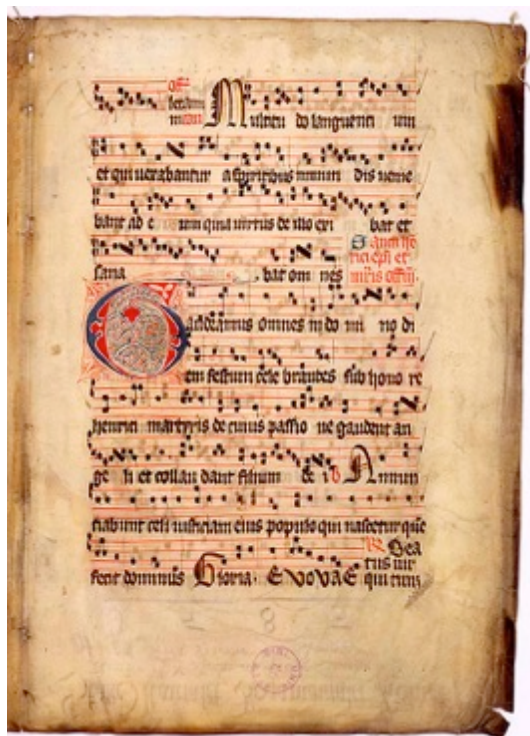 Multitu do languenti um
et qui uexabantur a spiritibus inmun dis ueni e
bant ad e um quia uirtus de illo exi bat et
sana bat om nes
Gaudeamus omnes in do mi no di
em festum cele brantes sub hono re
henrici martyris de cuius passio ne gaudent an
ge li et collau dant filium de i Annun
ciabunt celi iusticiam eius populo qui nascetur que
fecit dominus Gloria. EVOVAE
Bea
tus uir
qui